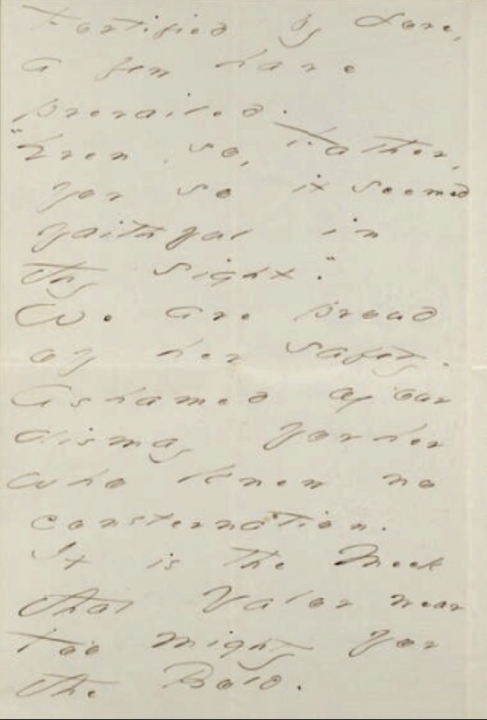 Fortified by Love,
a few have
prevailed.
"Even so, Father,
for so it seemed
faithful in
thy sight."
We are proud
of her safety.
Ashamed of our
dismay for her
who knew no
consternation.
It is the Meek
that Valor wear
too mighty for
the Bold.